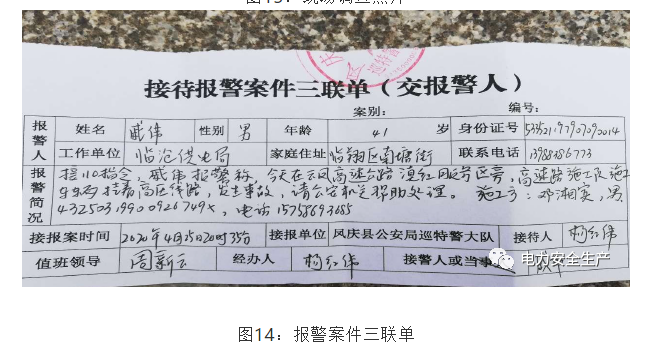 接待报警案件三联单（交报警人）
案别： 编号：
报警人 姓名 戚伟 性别 男 年龄 41 岁 身份证号
工作单位 临沧供电局 家庭住址 临翔区南塘街 联系电话
报警简况 接110指令，戚伟报警称，今天在云凤高速公路滇红 号区旁，高速路施工队施工
挂着高压线路，发生事故，请公安机关帮助处理。施工方：邓湘宾，男，
电话15758693685
接报案时间 2020年4月25日20时35分 接报单位 凤庆县公安局巡特警大队 接待人 杨红伟
值班领导 周新云 经办人 杨红伟 接警人或当事
电力安全生产
图14：报警案件三联单